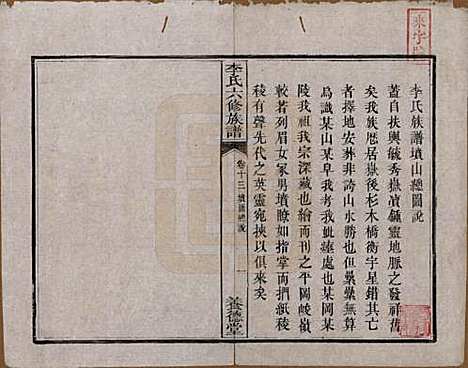 李氏族譜墳山總圖說
蓋自扶輿毓秀嶽瀆鍾靈地脈之發祥舊
矣我族歷居嶽後杉木橋衡宇星錯其亡
者擇地安葬非誇山水勝也但纍纍無算
烏識某山某阜我此穗處也某岡某
陵我祖我宗深藏也繪而刊之平岡峻嶺
較若列眉女冢男墳瞭如指掌而捫紙稜
稜有聲先代之英靈宛挾以俱來矣
李氏六修族譜
卷十三 墳圖總說
一
養德堂